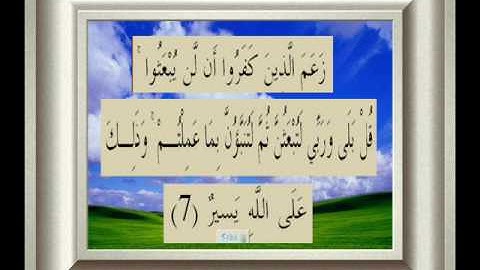 زَعَمَ الَّذِينَ كَفَرُوا أَن لَّن يُبْعَثُوا ۚ
قُلْ بَلَى وَرَبِّي لَتُبْعَثُنَّ ثُمَّ لَتُنَبَّؤُنَّ بِمَا عَمِلْتُــمْ ۚ وَذَلِــكَ
عَلَى اللَّهِ يَسِيرٌ (7)